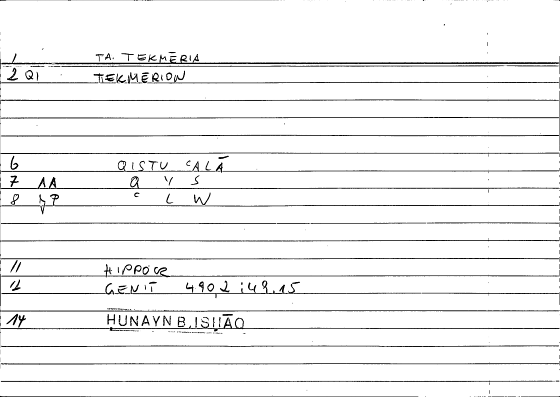 1 TA. TEKMĒRIA
2 QI TEKMERION
6 QISTU ʿALĀ
7 AA Q Y S
8 P ʿ L W
11 HIPPOCR
12 GENIT 490,2 : 49.15
14 HUNAYN B. ISḤĀQ